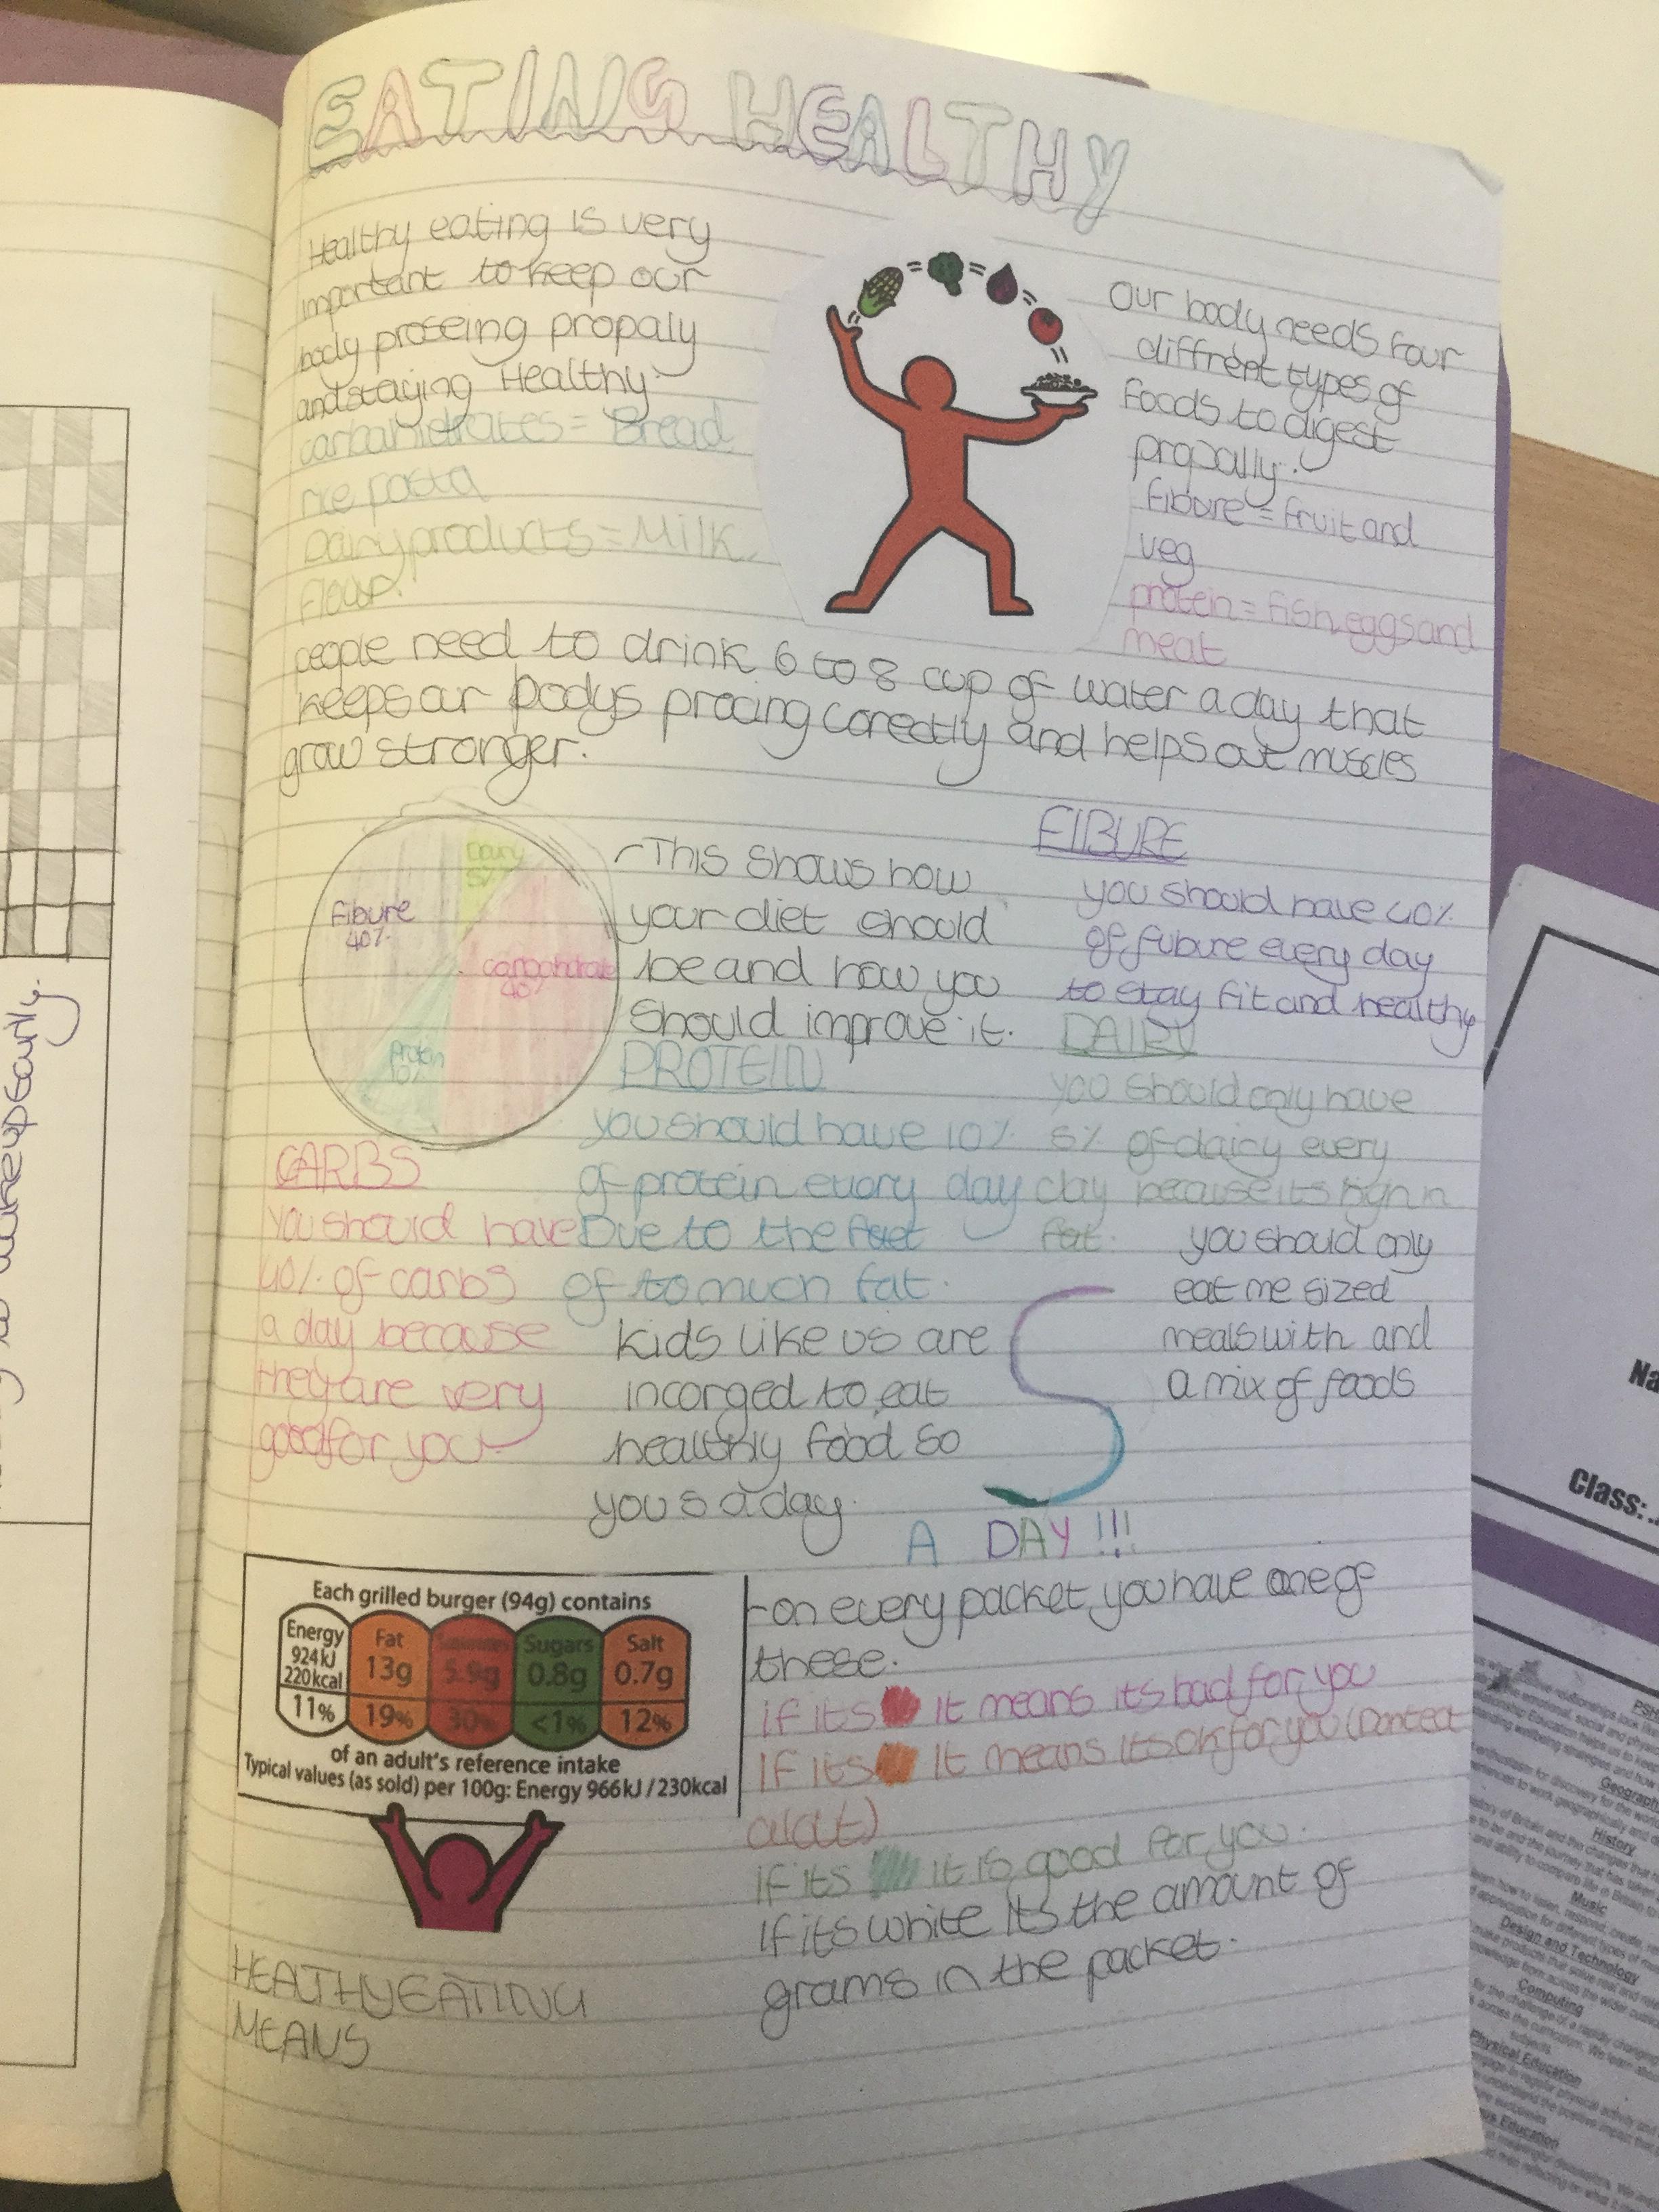 EATING HEALTHY
Healthy eating is very
important to keep our
body proseing propaly
and staying Healthy.
carbahidrates = Bread
rice pasta
Dairy products = Milk,
flour.
our body needs four
diffrent types of
foods to digest
propally.
fibure = fruit and
veg
protein = fish, eggs and
meat
people need to drink 6 to 8 cup of water a day that
keeps our bodys procing corectly and helps out muscles
grow stronger.
Dairy
5%
fibure
40%
carbohdrate
40%
protein
10%
-This shows how
your diet should
be and how you
should improve it.
FIBURE
you should have 40%
of fubure every day
to stay fit and healthy
DAIRY
you should only have
5% of dairy every
day because its high in
fat.
PROTEIN
you should have 10%
of protein every day
Due to the
of to much fat.
CARBS
You should have
40% of carbs
a day because
they are very
good for you
kids like us are
incorged to eat
healthly food so
you 5 a day.
5
A DAY !!!
you should only
eat me sized
meals with and
a mix of foods
Each grilled burger (94g) contains
Energy
924kJ
220kcal
11%
Fat
13g
19%
5.9g
30%
Sugars
0.8g
<1%
Salt
0.7g
12%
of an adult's reference intake
Typical values (as sold) per 100g: Energy 966kJ / 230kcal
-on every packet you have one of
these.
if its it means its bad for you
IF its it means its ok for you (Dont eat
alot)
if its it is good for you.
If its white its the amount of
grams in the packet.
HEALTHY EATING
MEANS
Class:
Geography
History
Music
Design and Technology
Computing
Physical Education